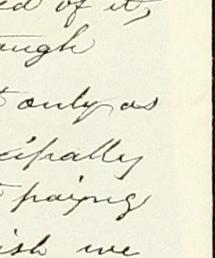 ed of it,
ough
t only as
cipally
t paying
ish we